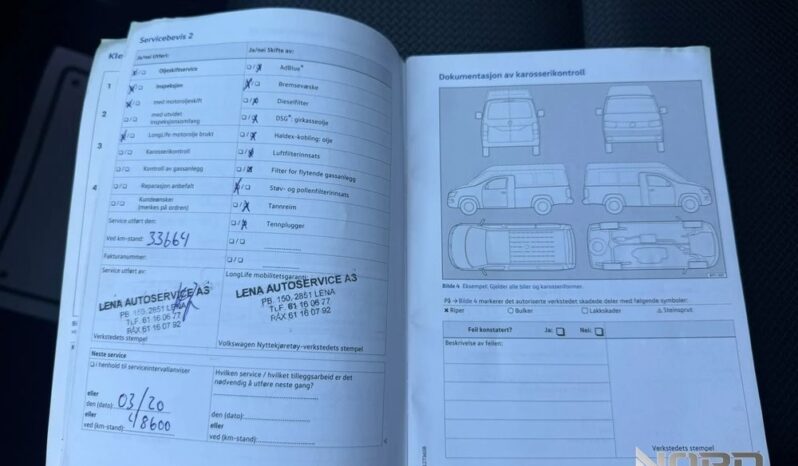 Servicebevis 2
Kle
Ja/nei Utført:
Ja/nei Skifte av:
Oljeskiftservice
AdBlue®
1
Inspeksjon
Bremsevæske
med motoroljeskift
Dieselfilter
2
med utvidet
inspeksjonsomfang
DSG®: girkasseolje
LongLife-motorolje brukt
Haldex-kobling: olje
3
Karosserikontroll
Luftfilterinnsats
Kontroll av gassanlegg
Filter for flytende gassanlegg
4
Reparasjon anbefalt
Støv- og pollenfilterinnsats
Kundeønsker
(merkes på ordren)
Tannreim
Service utført den:
Tennplugger
Ved km-stand: 33664
Fakturanummer:
Service utført av:
LongLife mobilitetsgaranti:
LENA AUTOSERVICE AS
PB. 150, 2851 LENA
TLF. 61 16 06 77
FAX 61 16 07 92
LENA AUTOSERVICE AS
PB. 150, 2851 LENA
TLF. 61 16 06 77
FAX 61 16 07 92
Verkstedets stempel
Volkswagen Nyttekjøretøy-verkstedets stempel
Neste service
i henhold til serviceintervallanviser
Hvilken service / hvilket tilleggsarbeid er det
nødvendig å utføre neste gang?
eller
den (dato): 03/20
den (dato):
eller
eller
ved (km-stand): 48600
ved (km-stand):
Dokumentasjon av karosserikontroll
Bilde 4 Eksempel. Gjelder alle biler og karosseriformer.
På → Bilde 4 markerer det autoriserte verkstedet skadede deler med følgende symboler:
× Riper ○ Bulker □ Lakkskader △ Steinsprut
Feil konstatert? Ja: Nei:
Beskrivelse av feilen:
Verkstedets stempel
NORD